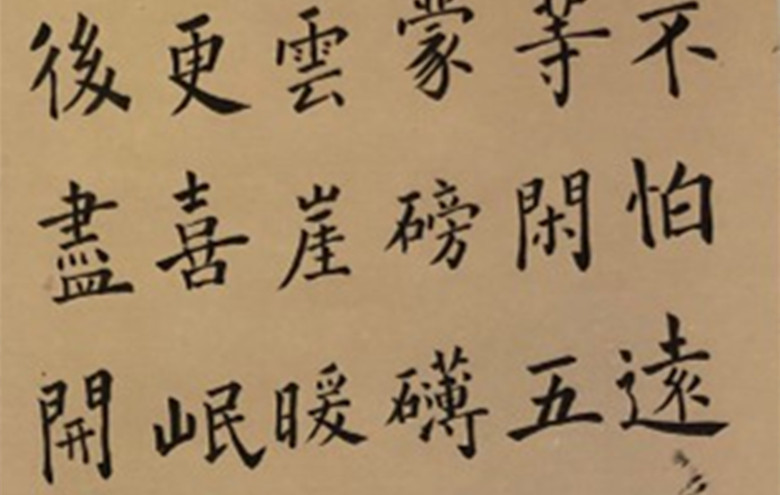 不怕遠
等閑五
蒙磅礴
雲崖暖
更喜岷
後盡開